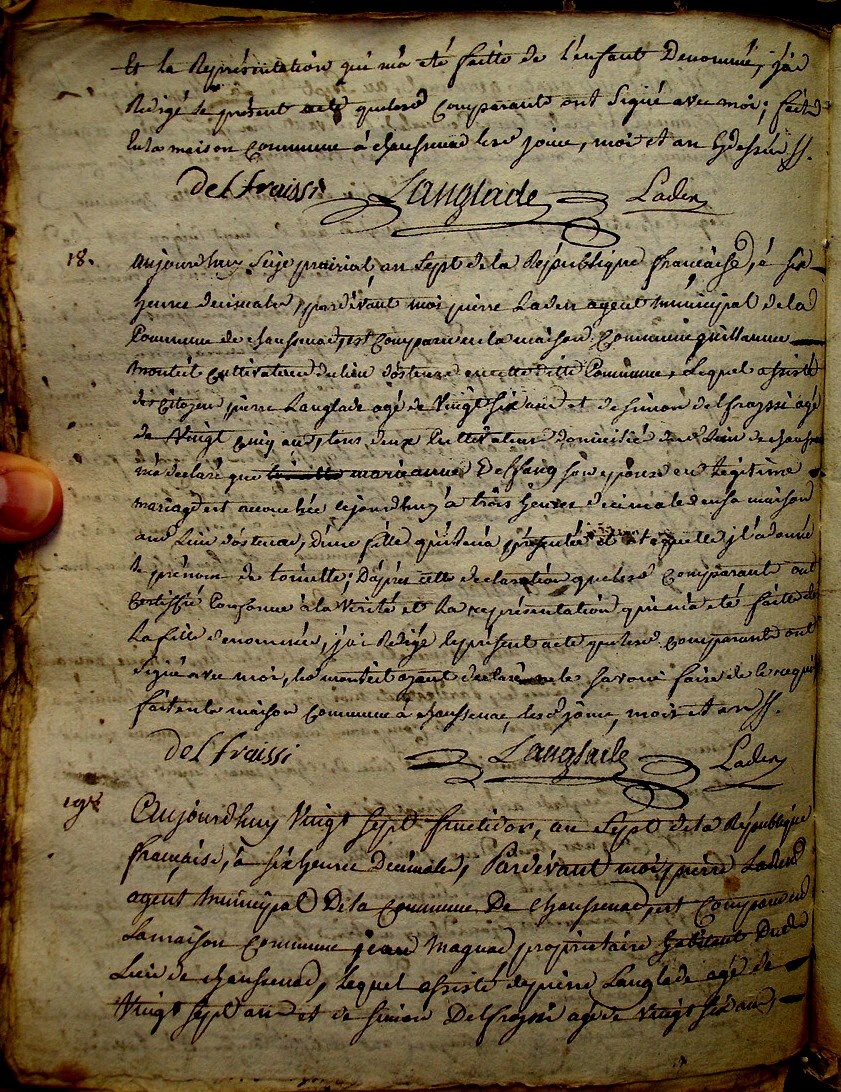 Et la Représentation qui m'a été faitte de l'enfant Denommé, j'ai
Redigé le présent acte que les d. Comparants ont Signé avec moi; fait
En la maison Commune à chaussenac les jour, mois et an
delfraissi Langlade Laden
18. aujourdhuy Seize prairial, an Sept de la République francaise, à six
heures decimales, pardevant moi pierre Laden agent municipal de la
Commune de chaussenac, est Comparu en la maison Commune guillaume
monteil Cultivateur du lieu d'ostenac en cette ditte Commune, Lequel assisté
des Citoyens pierre Langlade agé de Vingt Six ans et de simon delfrayssi agé
de Vingt cinq ans, tous deux Cultivateurs domicilié du d. Lieu de chaussenac
m'a declaré que marianne Delsang son epouse en legitime
mariage est accouchée cejourdhuy à trois heures decimales en sa maison
au d. Lieu d'ostenac, d'une fille qu'il m'a présentée et à laquelle il a donné
le prénom de toinette; D'après cette declaration que les d. Comparants ont
Certiffié Conforme à la Vérité et La représentation qui m'a été faitte de
La fille denommée, j'ai Redigé le present acte que les d. Comparants ont
Signé avec moi, le monteil ayant declaré ne le Savoir faire de ce requis
fait en la maison Commune à chaussenac, les d. jour, mois et an
delfraissi Langlade Laden
19e Aujourdhuy Vingt Sept fructidor, an Sept de la République
francaise, à six heures Decimales, Pardévant moi pierre Laden
agent municipal De la Commune De Chaussenac, est Comparu en
La maison Commune jean Magnac propriétaire habitant Dud.
Lieu de chaussenac, Lequel assisté de pierre Langlade agé de
Vingt Sept ans et de simon Delfrayssi agé de Vingt Six ans,